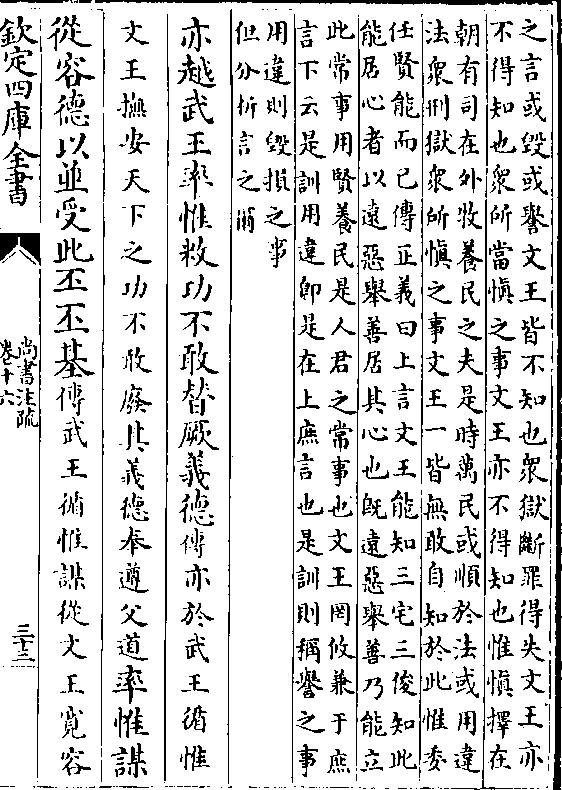 之言或毀或譽文王皆不知也衆獄斷罪得失文王亦
不得知也衆所當慎之事文王亦不得知也惟慎擇在
朝有司在外牧養民之夫是時萬民或順於法或用違
法衆刑獄衆所慎之事文王一皆無敢自知於此惟委
任賢能而已傳正義曰上言文王能知三宅三俊知此
能居心者以遠惡舉善居其心也既遠惡舉善乃能立
此常事用賢養民是人君之常事也文王罔攸兼于庶
言下云是訓用違即是在上庶言也是訓則稱譽之事
用違則毀損之事
但分析言之爾
亦越武王率惟敉功不敢替厥義德傳亦於武王循惟
文王撫安天下之功不敢廢其義德奉遵父道率惟謀
從容德以並受此丕丕基傳武王循惟謀從文王寛容
欽定四庫全書
尚書注疏
卷十六
三十三